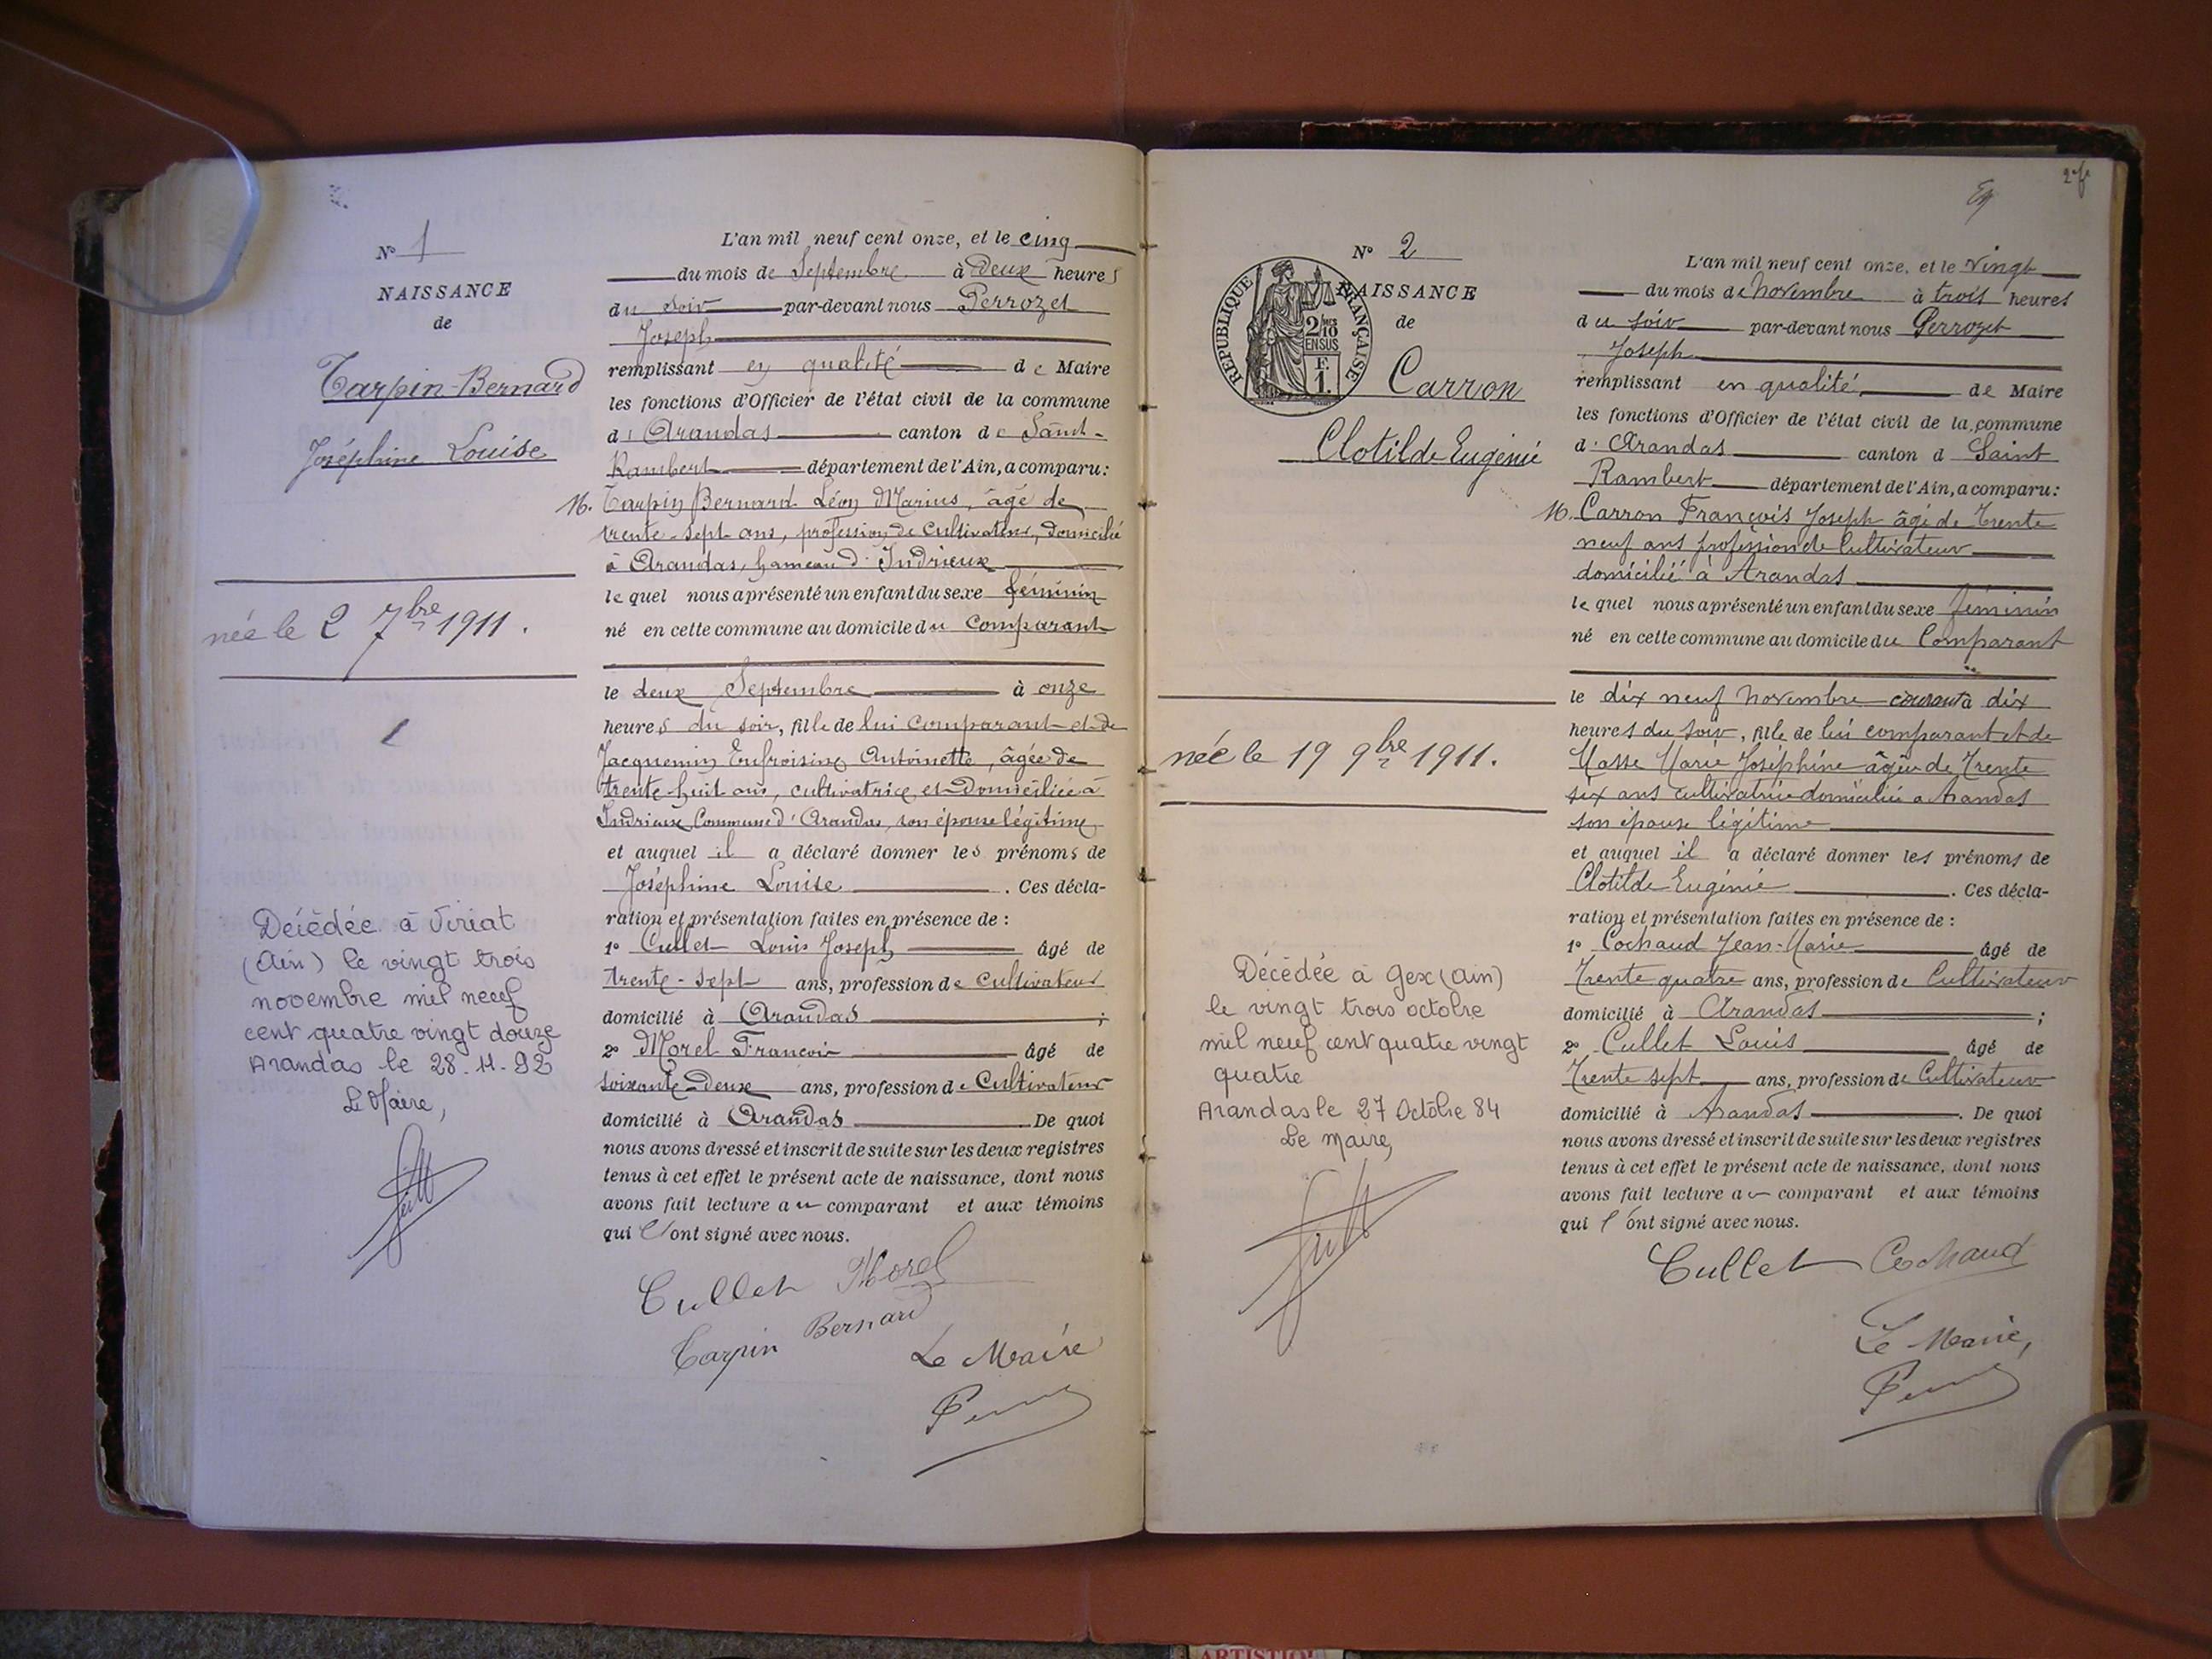 N° 1
NAISSANCE
de
Tarpin-Bernard
Joséphine Louise
née le 2 7bre 1911.
Décédée à Viriat
(Ain) le vingt trois
novembre mil neuf
cent quatre vingt douze
Arandas le 28-11-92
Le Maire,
L'an mil neuf cent onze, et le cinq
du mois de Septembre à Deux heures
du soir par-devant nous Perrozet
Joseph
remplissant en qualité de Maire
les fonctions d'Officier de l'état civil de la commune
d'Arandas canton de Saint-
Rambert département de l'Ain, a comparu:
M. Tarpin Bernard Léon Marius, âgé de
trente-sept ans, profession de Cultivateur, domicilié
à Arandas, hameau d'Indrieux
lequel nous a présenté un enfant du sexe féminin
né en cette commune au domicile du Comparant
le deux Septembre à onze
heures du soir, fille de lui comparant et de
Jacquemin Eufroisine Antoinette, âgée de
trente-huit ans, cultivatrice et domiciliée à
Indrieux Commune d'Arandas, son épouse légitime
et auquel il a déclaré donner les prénoms de
Joséphine Louise . Ces décla-
ration et présentation faites en présence de :
1° Cullet Louis Joseph âgé de
trente-sept ans, profession de Cultivateur
domicilié à Arandas ;
2° Morel François âgé de
soixante-deux ans, profession de Cultivateur
domicilié à Arandas . De quoi
nous avons dressé et inscrit de suite sur les deux registres
tenus à cet effet le présent acte de naissance, dont nous
avons fait lecture au comparant et aux témoins
qui l'ont signé avec nous.
Cullet Morel
Tarpin Bernard
Le Maire
2 f
N° 2
NAISSANCE
de
RÉPUBLIQUE FRANÇAISE
2/10
EN SUS
F.
1.
Carron
Clotilde Eugénie
née le 19 9bre 1911.
Décédée à Gex (Ain)
le vingt trois octobre
mil neuf cent quatre vingt
quatre
Arandas le 27 Octobre 84
Le Maire,
L'an mil neuf cent onze, et le vingt
du mois de Novembre à trois heures
du soir par-devant nous Perrozet
Joseph
remplissant en qualité de Maire
les fonctions d'Officier de l'état civil de la commune
d'Arandas canton d Saint
Rambert département de l'Ain, a comparu:
M. Carron François Joseph âgé de Trente
neuf ans profession de Cultivateur
domicilié à Arandas
lequel nous a présenté un enfant du sexe féminin
né en cette commune au domicile du Comparant
le dix neuf Novembre courant à dix
heures du soir, fille de lui comparant et de
Masse Marie Joséphine âgée de Trente
six ans cultivatrice domiciliée à Arandas
son épouse légitime
et auquel il a déclaré donner les prénoms de
Clotilde Eugénie . Ces décla-
ration et présentation faites en présence de :
1° Cochaud Jean-Marie âgé de
Trente quatre ans, profession de Cultivateur
domicilié à Arandas ;
2° Cullet Louis âgé de
Trente sept ans, profession de Cultivateur
domicilié à Arandas . De quoi
nous avons dressé et inscrit de suite sur les deux registres
tenus à cet effet le présent acte de naissance, dont nous
avons fait lecture au comparant et aux témoins
qui l'ont signé avec nous.
Cullet Cochaud
Le Maire,